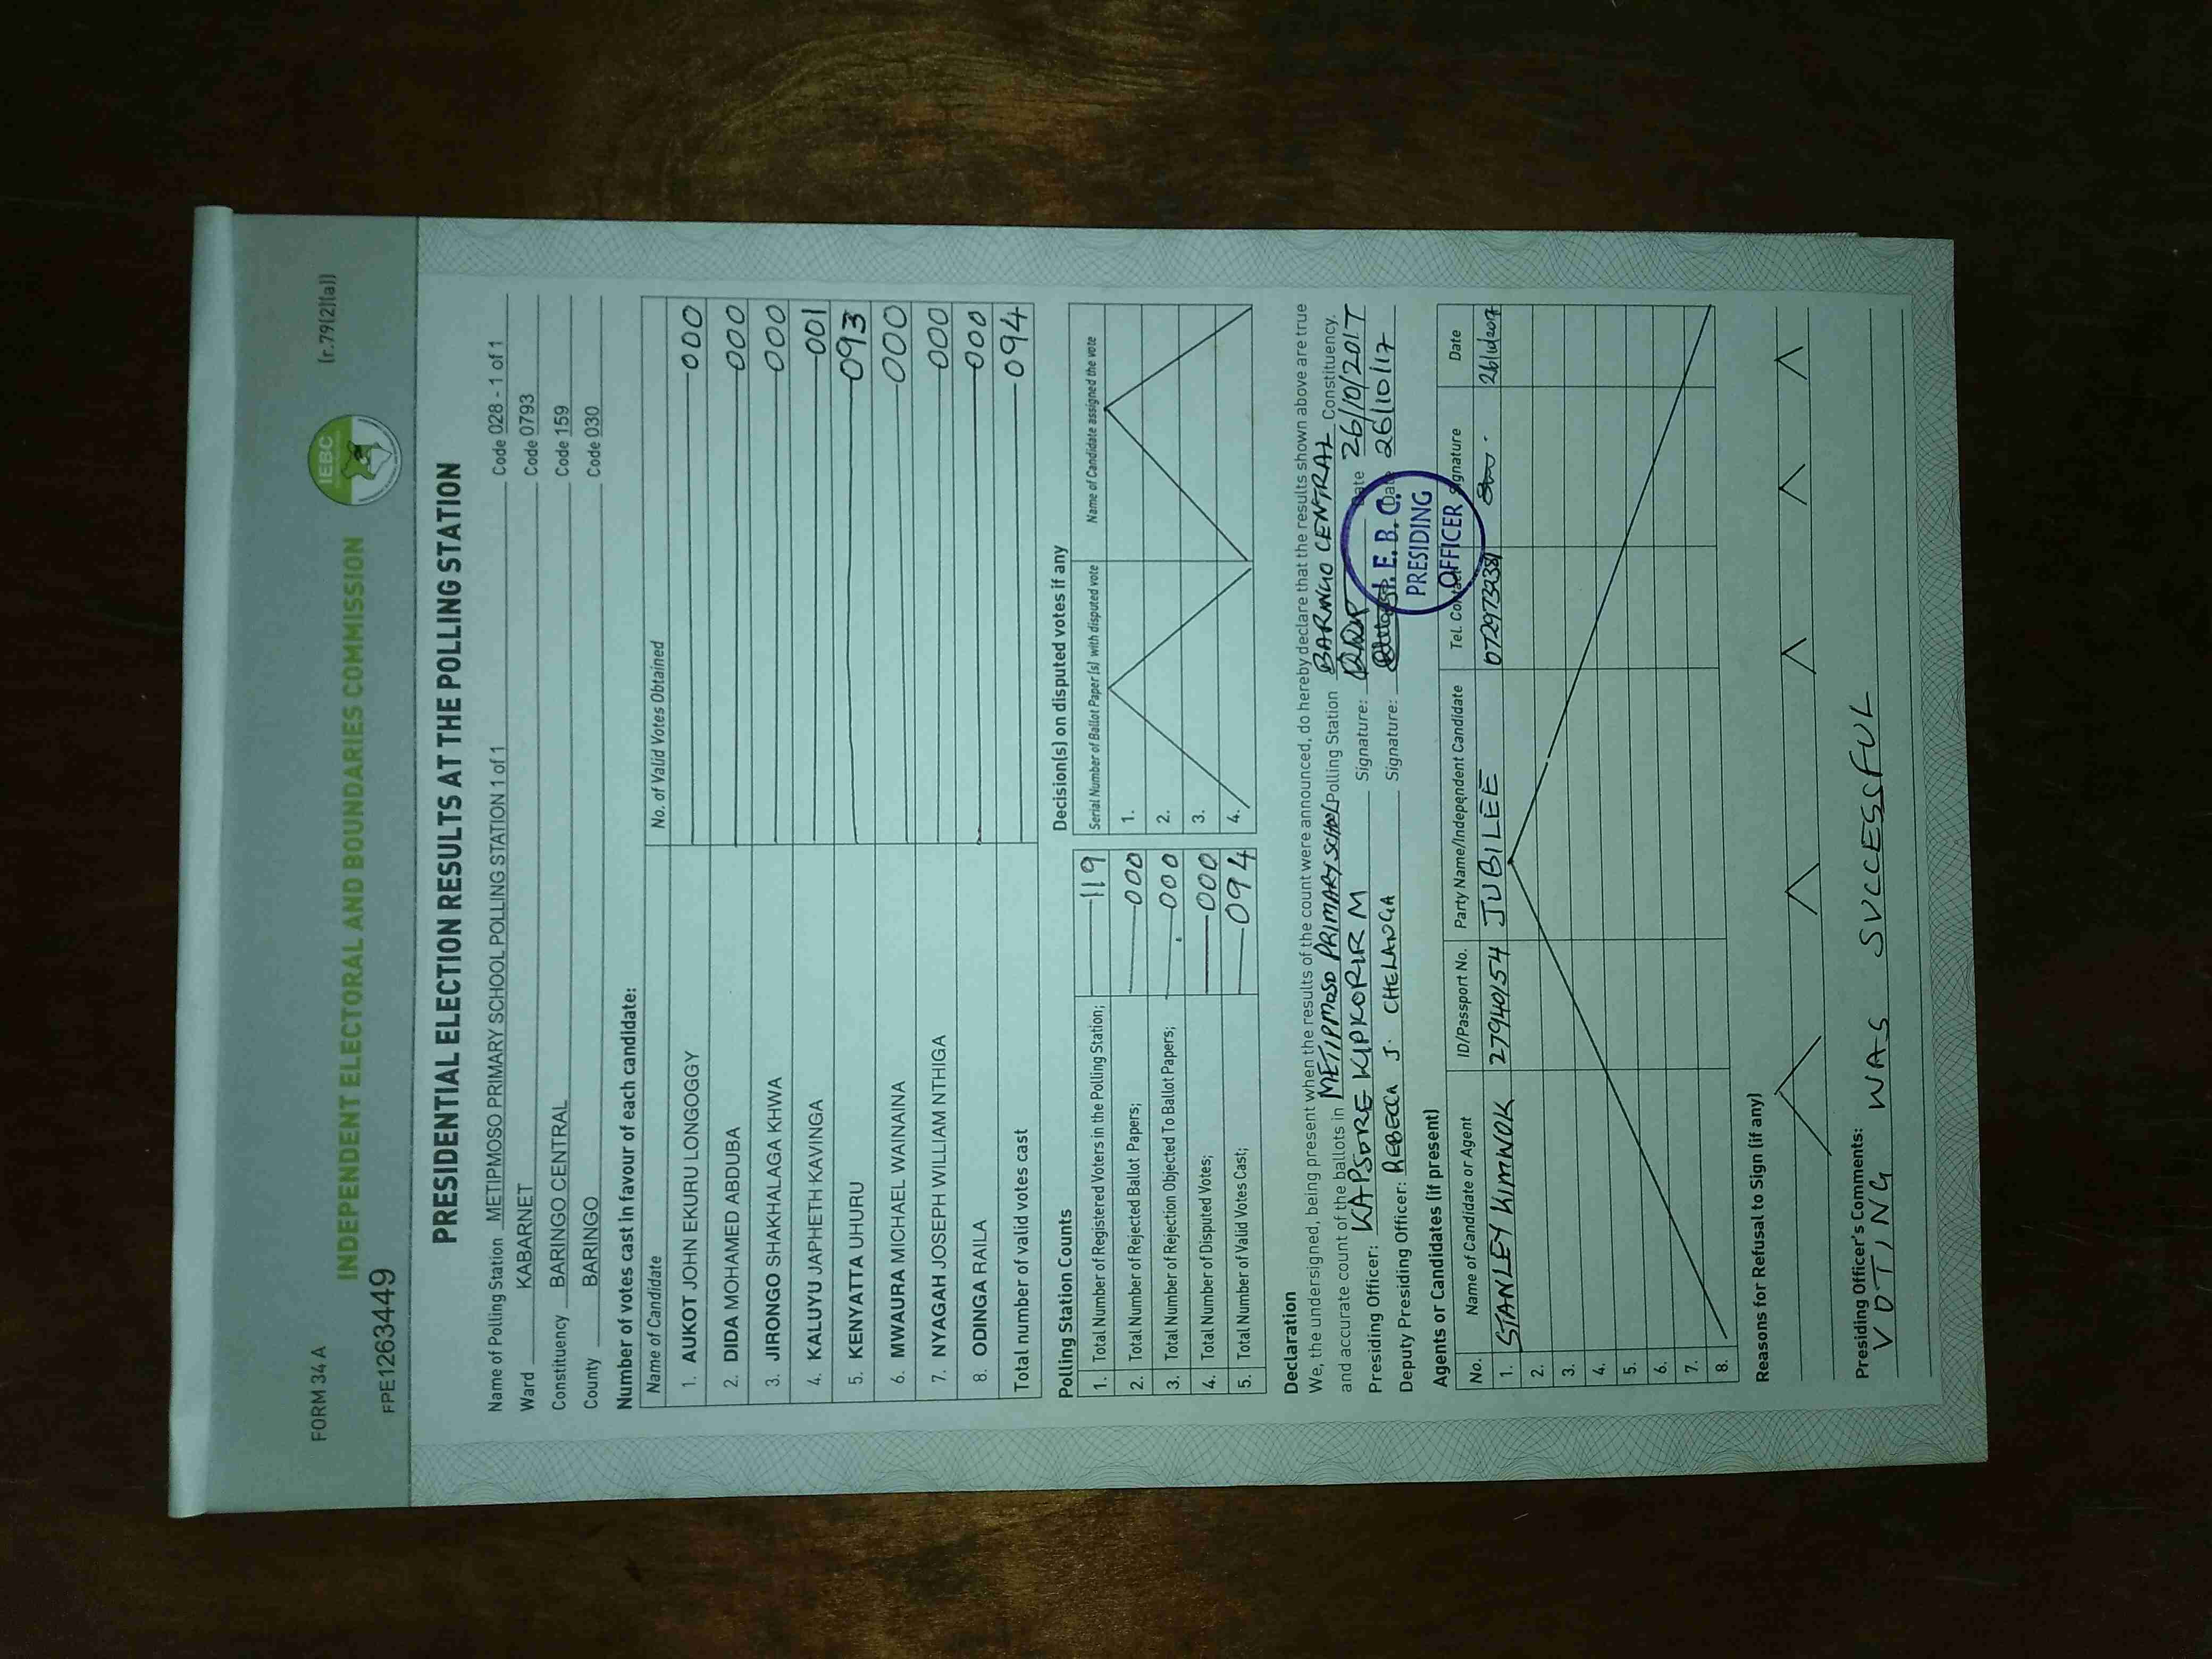 FORM 34 A
(r.79(2)(a))
IEBC
INDEPENDENT ELECTORAL AND BOUNDARIES COMMISSION
FPE1263449
PRESIDENTIAL ELECTION RESULTS AT THE POLLING STATION
Name of Polling Station METIPMOSO PRIMARY SCHOOL POLLING STATION 1 of 1 Code 028 - 1 of 1
Ward KABARNET Code 0793
Constituency BARINGO CENTRAL Code 159
County BARINGO Code 030
Number of votes cast in favour of each candidate:
Name of Candidate No. of Valid Votes Obtained
1. AUKOT JOHN EKURU LONGOGGY 000
2. DIDA MOHAMED ABDUBA 000
3. JIRONGO SHAKHALAGA KHWA 000
4. KALUYU JAPHETH KAVINGA 001
5. KENYATTA UHURU 093
6. MWAURA MICHAEL WAINAINA 000
7. NYAGAH JOSEPH WILLIAM NTHIGA 000
8. ODINGA RAILA 000
Total number of valid votes cast 094
Polling Station Counts
1. Total Number of Registered Voters in the Polling Station; 119
2. Total Number of Rejected Ballot Papers; 000
3. Total Number of Rejection Objected To Ballot Papers; 000
4. Total Number of Disputed Votes; 000
5. Total Number of Valid Votes Cast; 094
Decision(s) on disputed votes if any
Serial Number of Ballot Paper(s) with disputed vote Name of Candidate assigned the vote
1.
2.
3.
4.
Declaration
We, the undersigned, being present when the results of the count were announced, do hereby declare that the results shown above are true
and accurate count of the ballots in METIPMOSO PRIMARY SCHOOL Polling Station BARINGO CENTRAL Constituency.
Presiding Officer: KAPSORE KIPKORIR M Signature: Date 26/10/2017
Deputy Presiding Officer: REBECCA J. CHELANGA Signature: Date 26/10/17
I. E. B. C.
PRESIDING
OFFICER
Agents or Candidates (if present)
No. Name of Candidate or Agent ID/Passport No. Party Name/Independent Candidate Tel. Contact Signature Date
1. STANLEY KIMWOK 27940154 JUBILEE
2.
3.
4.
5.
6.
7.
8.
Reasons for Refusal to Sign (if any)
Presiding Officer's Comments:
VOTING WAS SUCCESSFUL